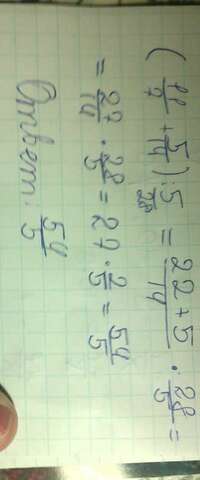 (11/7 + 5/14) : 5/28 = (22+5)/14 · 28/5 =
= 27/14 · 28/5 = 27 · 2/5 = 54/5
Ответ: 54/5